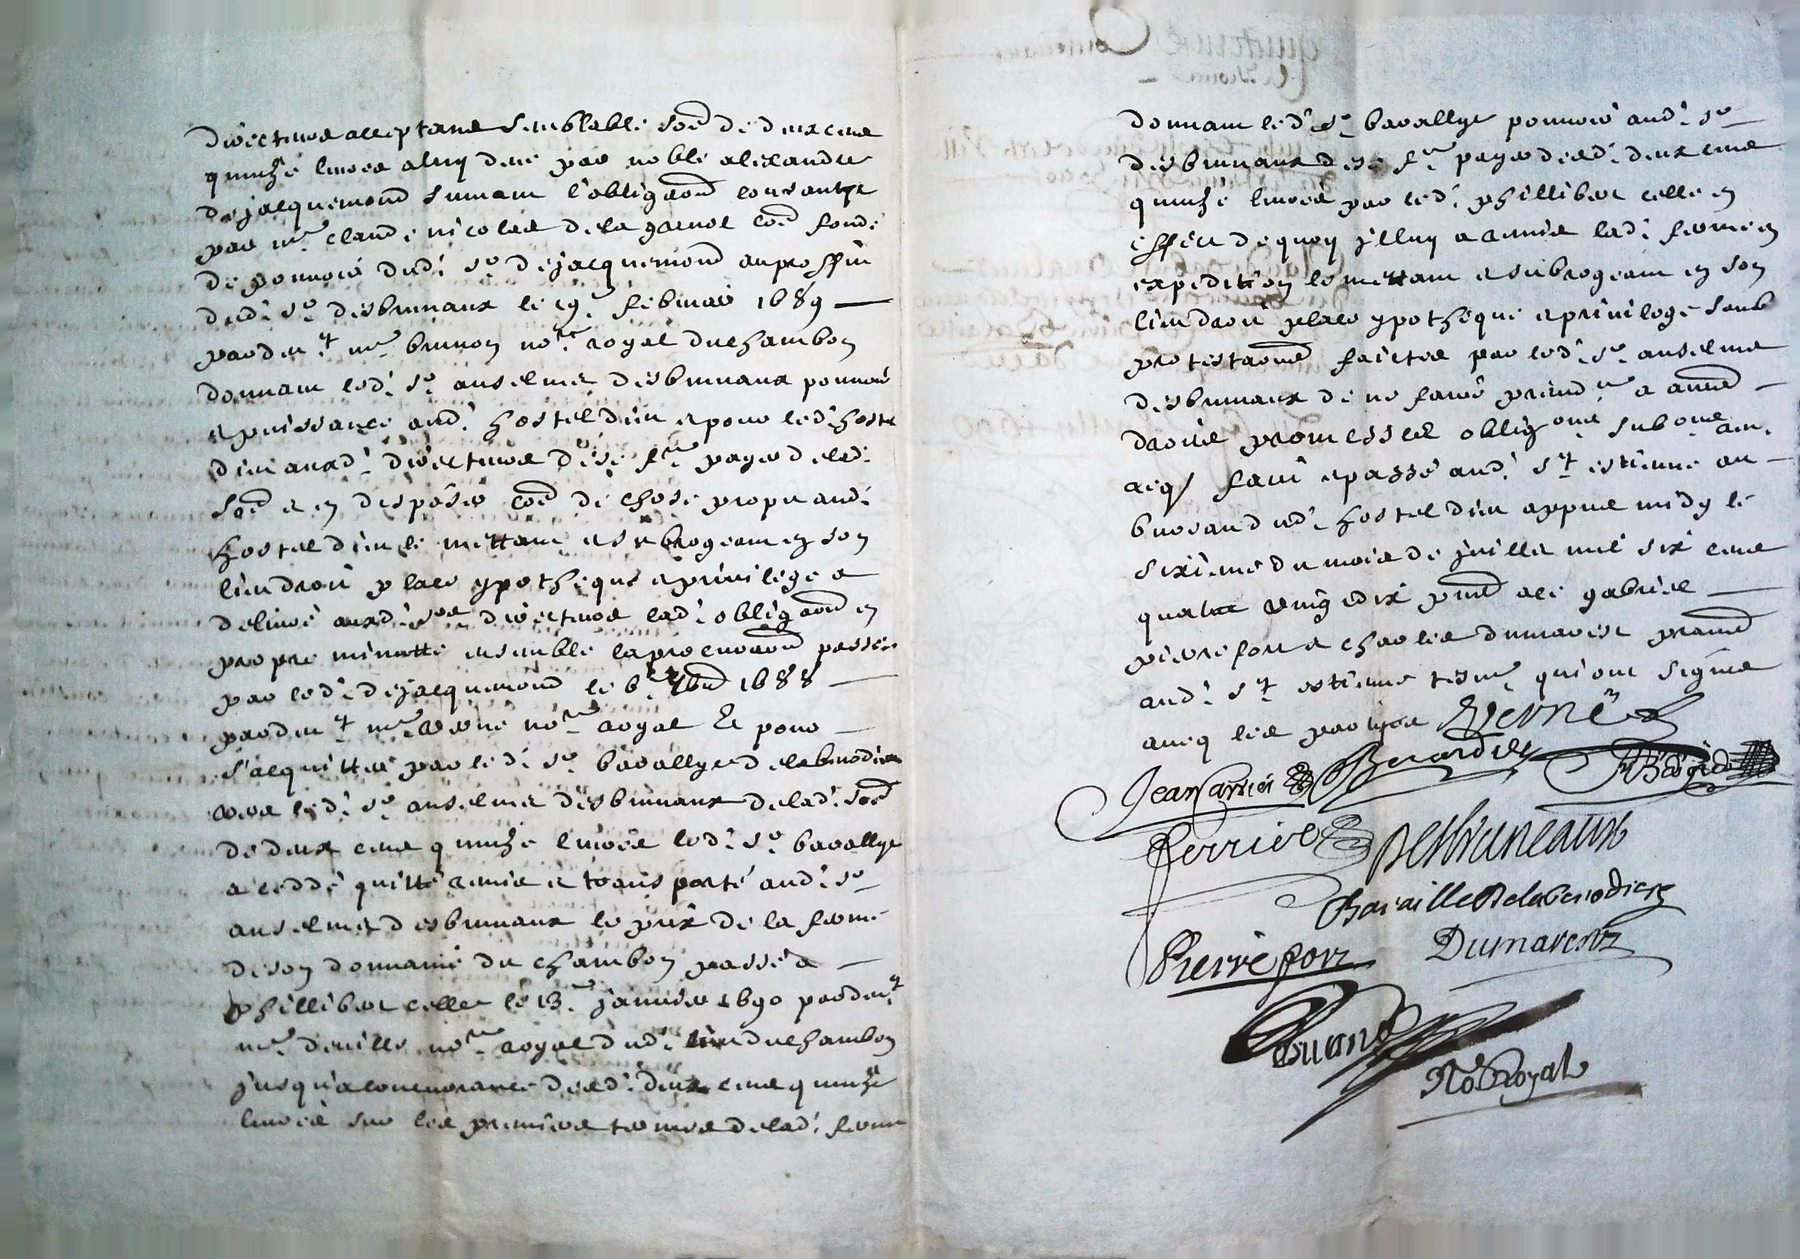 directeurs acceptans semblable som̃e de deux cens
quinze livres a luy deue par noble alexandre
dejacquemond suivant l'obligaõn consantye
par mᵉ claude nicolas de la garnol com̃e fondé
de pouvoir dudi: sʳ dejacquemond au proffit
dudi: sʳ desbruneaux le 19ᵉ febvrier 1689
pardevᵗ mᵉ brunon noʳᵉ royal du chambon
donnant ledi: sʳ anselme desbruneaux pouvoir
et puissance audi: hostel dieu et pour ledi: hostel
dieu auxdi: directeurs de se fʳᵉ payer de ladi:
som̃e et en disposer com̃e de chose propre audi:
hostel dieu le mettant et subrogeant en son
lieu droit place ypotheque et privilege a
delivré auxdi: sʳˢ directeurs ladi: obligaõn en
propre minutte ensemble la procuraõn passée
par ledi: dejacquemond le 6ᵉ 9bre 1688
pardevᵗ mᵉ verne noʳᵉ royal Et pour
s'acquitter par ledi: sʳ baraillye de la berodiere
vers ledi: sʳ anselme desbruneaux de ladi: som̃e
de deux cens quinze livres ledi: sʳ baraillye
a ceddé quitté remis et transporté audi: sʳ
anselme desbruneaux le prix de la ferme
de son domaine du chambon passé a
phillibert celle le 13ᵉ janvier 1690 pardevᵗ
mᵉ deville noʳᵉ royal dudi: lieu du chambon
jusqu'a concurrance desdi: deux cens quinze
livres sur les premiers termes de ladi: ferme
donnant ledi: sʳ baraillye pouvoir audi: sʳ
desbruneaux de se fʳᵉ payer desdi: deux cens
quinze livres par ledi: phillibert celle en
effect de quoy jl luy a remis ladi: ferme en
expedition le mettant et subrogeant en son
lieu droit place ypotheque et privilege soub
protestaõn faictes par ledi: sʳ anselme
desbruneaux de ne faire preiudᵉ a autre
droits promesses obligõns subõns
acq faict et passé audi: sᵗ estienne au
bureau dudi: hostel dieu appres midy le
sixieme du mois de juillet mil six cens
quatre vingt dix pñts a ce gabriel
pierrefort et charles dumarest praticn
audi: sᵗ estienne tesmᵉ qui ont signés
avecq les parties Verne
Jean Carrier Berardier
Ferriere Desbruneaux
Baraille De la berodiere
Pierrefort Dumarest
No Royal